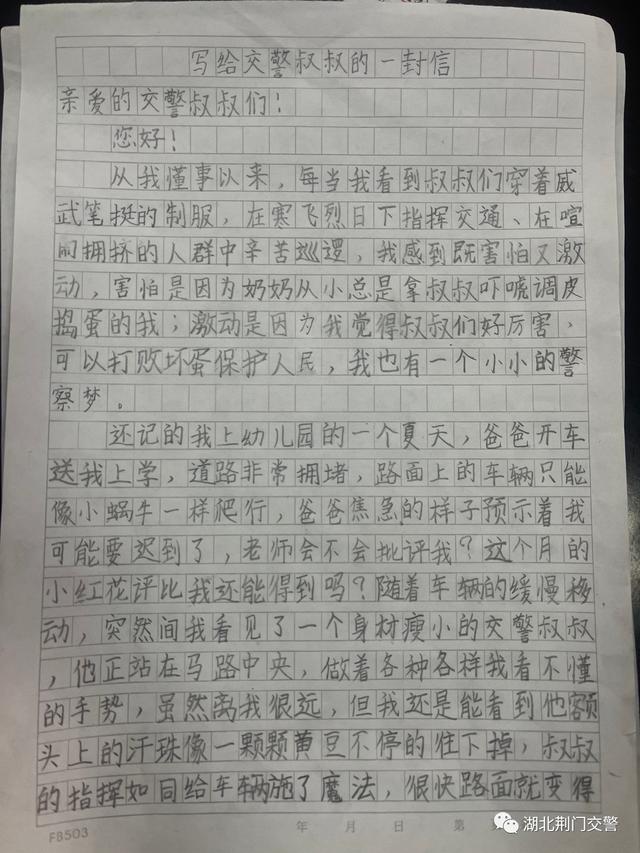 写给交警叔叔的一封信
亲爱的交警叔叔们!
您好!
从我懂事以来,每当我看到叔叔们穿着威
武笔挺的制服,在寒飞烈日下指挥交通、在喧
闹拥挤的人群中辛苦巡逻,我感到既害怕又激
动,害怕是因为奶奶从小总是拿叔叔吓唬调皮
捣蛋的我;激动是因为我觉得叔叔们好厉害,
可以打败坏蛋保护人民,我也有一个小小的警
察梦。
还记的我上幼儿园的一个夏天,爸爸开车
送我上学,道路非常拥堵,路面上的车辆只能
像小蜗牛一样爬行,爸爸焦急的样子预示着我
可能要迟到了,老师会不会批评我?这个月的
小红花评比我还能得到吗?随着车辆的缓慢移
动,突然间我看见了一个身材瘦小的交警叔叔
,他正站在马路中央,做着各种各样我看不懂
的手势,虽然离我很远,但我还是能看到他额
头上的汗珠像一颗颗黄豆不停的往下掉,叔叔
的指挥如同给车辆施了魔法,很快路面就变得
FB503 年 月 日 第
湖北荆门交警